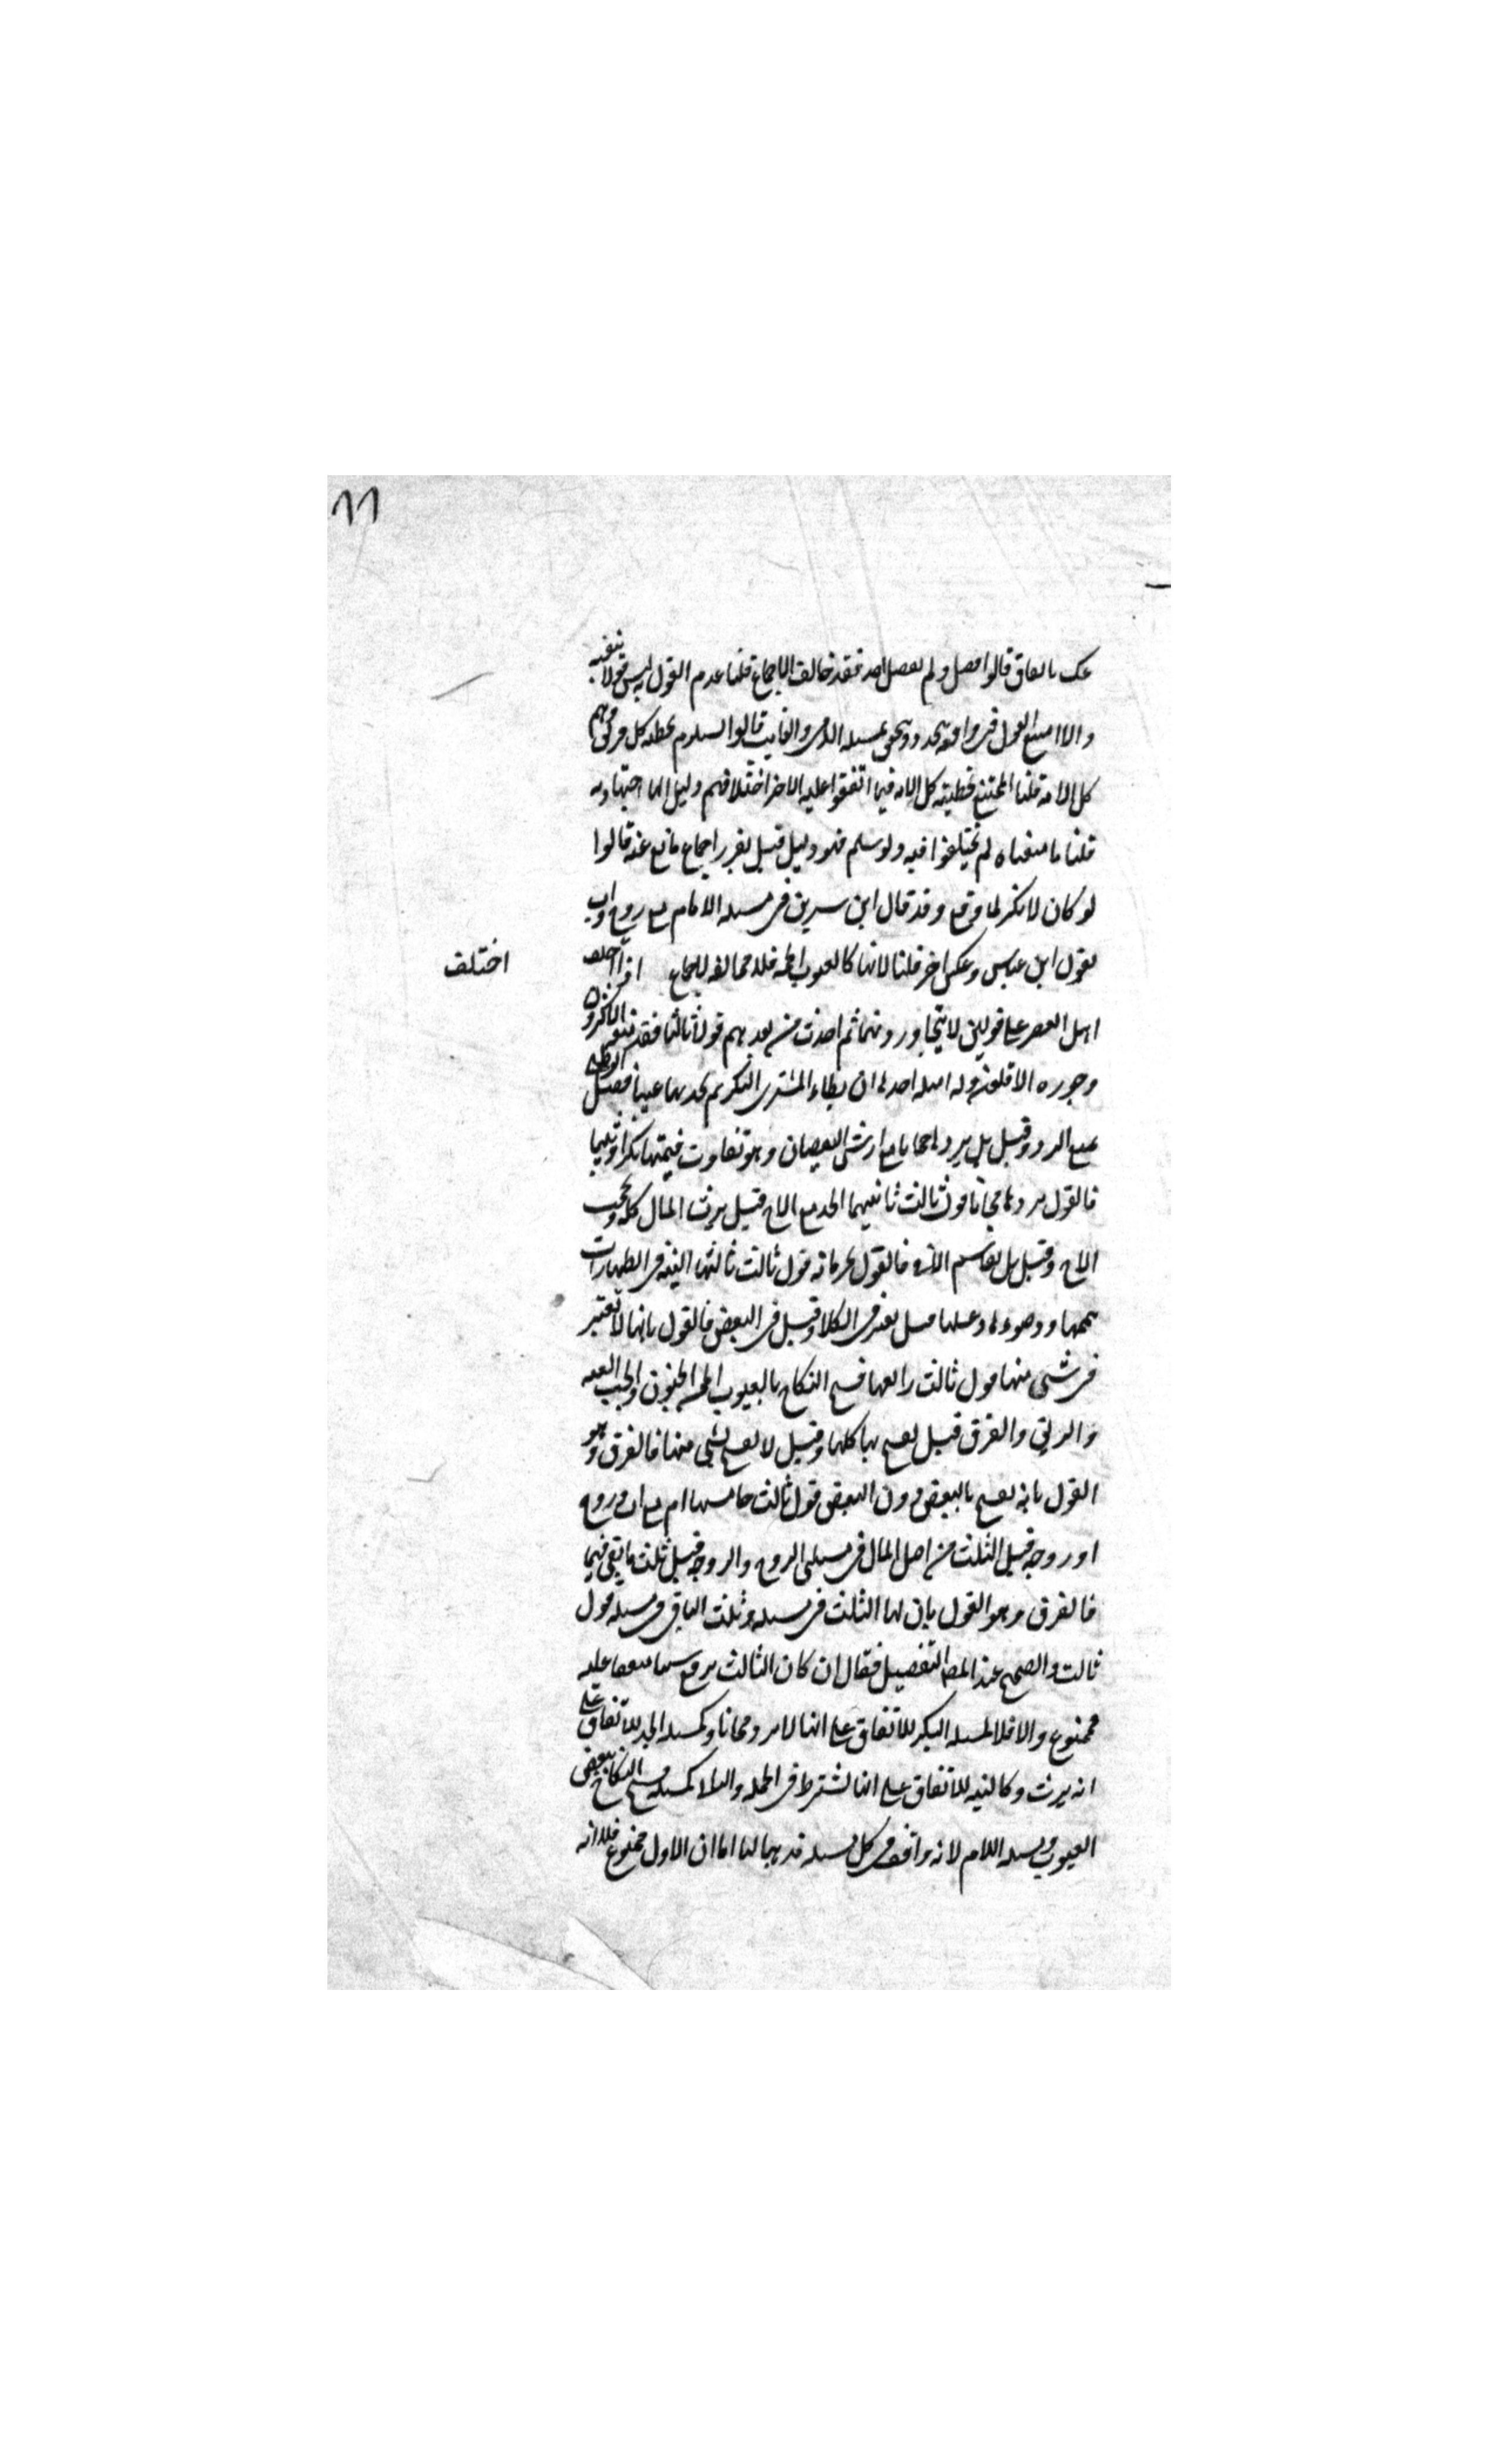 ١١
عك بالعاق قالوا فصل ولم يفصل احد فقد خالف الاجماع قلنا عدم القول به ليس قولا بنفيه
والا امتنع القول فى واقعه تتجدد ويتحقق بمسيله الذمى والغايب قالوا يستلزم تخطئه كل فريق وهم
كل الامة قلنا الممتنع تخطيته كل الامه فيما اتفقوا عليه الاخر اختلافهم دليل انها اجتهاديه
قلنا ما منعناه لم يختلفوا فيه ولو سلم فهو دليل قبل تقرر اجماع مانع عنه قالوا
لو كان لانكر لما وقع وقد قال ابن سيرين فى مسيله الام مع زوج واب
بقول ابن عباس وعكس اخر قلنا لانها كالعيوب الخمسه فلا مخالفه للاجماع اذا اختلف
اختلف
اهل العصر على قولين لا يتجاوزونهما ثم احدث من بعدهم قولا ثالثا فقد منعه الاكثرون
وجوزه الاقلون وله امثله احدها ان يطاء المشترى البكر ثم يجد بها عيبا فقيل الوطى
يمنع الرد وقيل بل يردها مع ارش النقصان وهو تفاوت قيمتها بكرا وثيبا
فالقول بردها مجانا قول ثالث ثانيهما الجد مع الاخ قيل يرث المال كله ويحجب
الاخ وقيل بل يقاسم الاخ فالقول بحرمانه قول ثالث ثالثها النيه فى الطهارات
تيممها ووضوءها وغسلها قيل تعتبر فى الكل وقيل فى البعض فالقول بانها لا تعتبر
فى شى منها قول ثالث رابعها فسخ النكاح بالعيوب الخمسه الجنون والجب والعنه
والرتق والقرن قيل يفسخ بها كلها وقيل لا يفسخ بشى منها فالفرق وهو
القول بانه يفسخ بالبعض دون البعض قول ثالث خامسها ام مع اب وزوج
او زوجه قيل الثلث من اصل المال فى مسيلتى الزوج والزوجه وقيل ثلث ما بقى فيهما
فالفرق وهو القول بان لها الثلث فى مسيله وثلث الباقى فى مسيله قول
ثالث والصحيح عند المصه التفصيل فقال ان كان الثالث يرفع شيا متفقا عليه
فممنوع والا فلا كمسيله البكر للاتفاق على انها لا ترد مجانا وكمسيله الجد للاتفاق على
انه يرث وكالنيه للاتفاق على انها تشترط فى الجمله والا فلا كمسيله فسخ النكاح ببعض
العيوب ومسيله الام لانه وافق فى كل مسيله مذهبا لنا اما ان الاول ممنوع فلانه